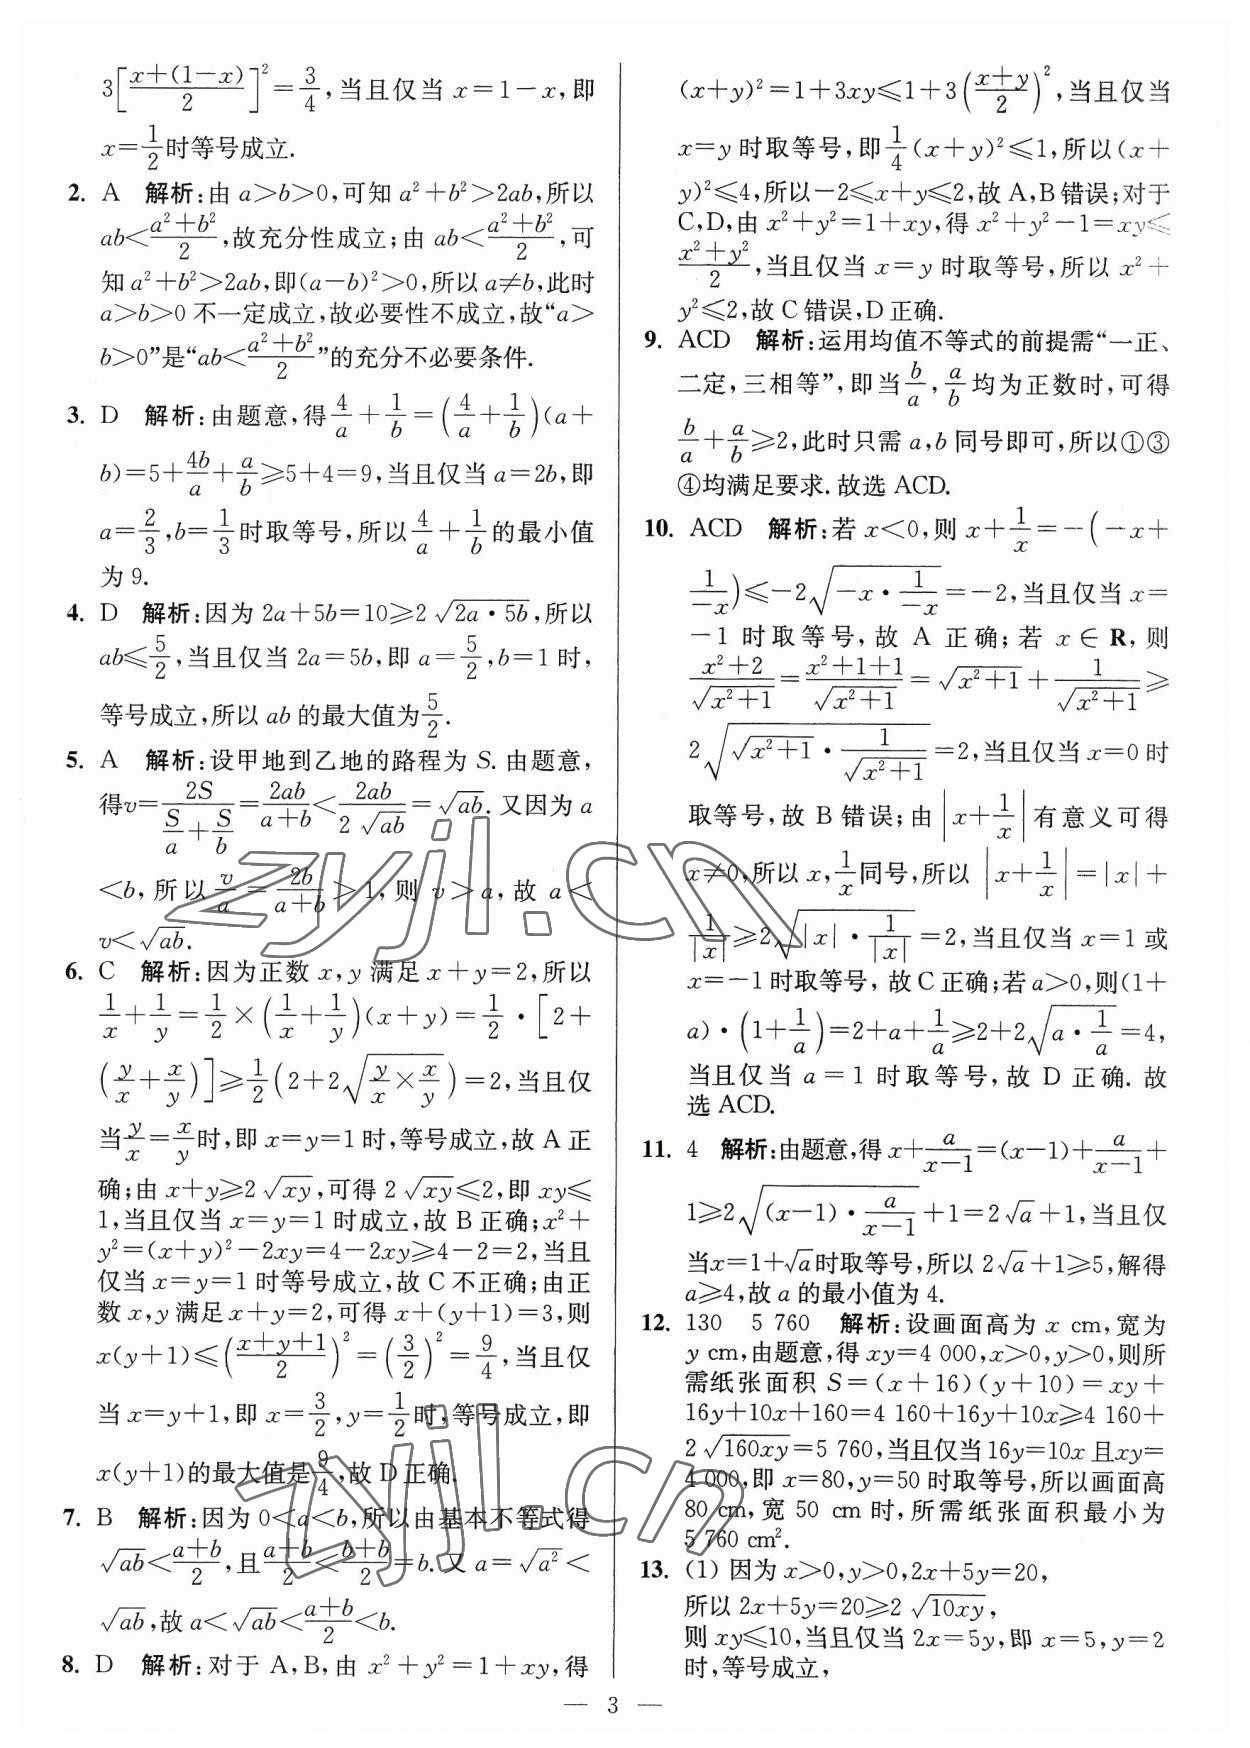 3[\frac{x+(1-x)}{2}]^2=\frac{3}{4},当且仅当 x=1-x,即
x=\frac{1}{2}时等号成立.
2. A 解析:由 a>b>0,可知 a^2+b^2>2ab,所以
ab<\frac{a^2+b^2}{2},故充分性成立;由 ab<\frac{a^2+b^2}{2},可
知 a^2+b^2>2ab,即(a-b)^2>0,所以 a≠b,此时
a>b>0 不一定成立,故必要性不成立,故“a>
b>0”是“ab<\frac{a^2+b^2}{2}”的充分不必要条件.
3. D 解析:由题意,得\frac{4}{a}+\frac{1}{b}=(\frac{4}{a}+\frac{1}{b})(a+
b)=5+\frac{4b}{a}+\frac{a}{b}≥5+4=9,当且仅当 a=2b,即
a=\frac{2}{3},b=\frac{1}{3}时取等号,所以\frac{4}{a}+\frac{1}{b}的最小值
为 9.
4. D 解析:因为 2a+5b=10≥2\sqrt{2a·5b},所以
ab≤\frac{5}{2},当且仅当 2a=5b,即 a=\frac{5}{2},b=1 时,
等号成立,所以 ab 的最大值为\frac{5}{2}.
5. A 解析:设甲地到乙地的路程为 S.由题意,
得v=\frac{2S}{\frac{S}{a}+\frac{S}{b}}=\frac{2ab}{a+b}<\frac{2ab}{2\sqrt{ab}}=\sqrt{ab}.又因为 a
<b,所以\frac{v}{a}=\frac{2b}{a+b}>1,则 v>a,故 a<
v<\sqrt{ab}.
6. C 解析:因为正数 x,y 满足 x+y=2,所以
\frac{1}{x}+\frac{1}{y}=\frac{1}{2}×(\frac{1}{x}+\frac{1}{y})(x+y)=\frac{1}{2}·[2+
(\frac{y}{x}+\frac{x}{y})]≥\frac{1}{2}(2+2\sqrt{\frac{y}{x}×\frac{x}{y}})=2,当且仅
当\frac{y}{x}=\frac{x}{y}时,即 x=y=1 时,等号成立,故 A 正
确;由 x+y≥2\sqrt{xy},可得 2\sqrt{xy}≤2,即 xy≤
1,当且仅当 x=y=1 时成立,故 B 正确;x^2+
y^2=(x+y)^2-2xy=4-2xy≥4-2=2,当且
仅当 x=y=1 时等号成立,故 C 不正确;由正
数 x,y 满足 x+y=2,可得 x+(y+1)=3,则
x(y+1)≤(\frac{x+y+1}{2})^2=(\frac{3}{2})^2=\frac{9}{4},当且仅
当 x=y+1,即 x=\frac{3}{2},y=\frac{1}{2}时,等号成立,即
x(y+1)的最大值是\frac{9}{4},故 D 正确.
7. B 解析:因为 0<a<b,所以由基本不等式得
\sqrt{ab}<\frac{a+b}{2},且\frac{a+b}{2}<\frac{b+b}{2}=b.又 a=\sqrt{a^2}<
\sqrt{ab},故 a<\sqrt{ab}<\frac{a+b}{2}<b.
8. D 解析:对于 A,B,由 x^2+y^2=1+xy,得
(x+y)^2=1+3xy≤1+3(\frac{x+y}{2})^2,当且仅当
x=y 时取等号,即\frac{1}{4}(x+y)^2≤1,所以(x+
y)^2≤4,所以-2≤x+y≤2,故 A,B 错误;对于
C,D,由 x^2+y^2=1+xy,得 x^2+y^2-1=xy≤
\frac{x^2+y^2}{2},当且仅当 x=y 时取等号,所以 x^2+
y^2≤2,故 C 错误,D 正确.
9. ACD 解析:运用均值不等式的前提需“一正、
二定,三相等”,即当\frac{b}{a},\frac{a}{b}均为正数时,可得
\frac{b}{a}+\frac{a}{b}≥2,此时只需 a,b 同号即可,所以①③
④均满足要求.故选 ACD.
10. ACD 解析:若 x<0,则 x+\frac{1}{x}=-(-x+
\frac{1}{-x})≤-2\sqrt{-x·\frac{1}{-x}}=-2,当且仅当 x=
-1 时取等号,故 A 正确;若 x∈R,则
\frac{x^2+2}{\sqrt{x^2+1}}=\frac{x^2+1+1}{\sqrt{x^2+1}}=\sqrt{x^2+1}+\frac{1}{\sqrt{x^2+1}}≥
2\sqrt{\sqrt{x^2+1}·\frac{1}{\sqrt{x^2+1}}}=2,当且仅当 x=0 时
取等号,故 B 错误;由|x+\frac{1}{x}|有意义可得
x≠0,所以 x,\frac{1}{x}同号,所以|x+\frac{1}{x}|=|x|+
\frac{1}{|x|}≥2\sqrt{|x|·\frac{1}{|x|}}=2,当且仅当 x=1 或
x=-1 时取等号,故 C 正确;若 a>0,则(1+
a)·(1+\frac{1}{a})=2+a+\frac{1}{a}≥2+2\sqrt{a·\frac{1}{a}}=4,
当且仅当 a=1 时取等号,故 D 正确.故
选 ACD.
11. 4 解析:由题意,得 x+\frac{a}{x-1}=(x-1)+\frac{a}{x-1}+
1≥2\sqrt{(x-1)·\frac{a}{x-1}}+1=2\sqrt{a}+1,当且仅
当x=1+\sqrt{a}时取等号,所以 2\sqrt{a}+1≥5,解得
a≥4,故 a 的最小值为 4.
12. 130 5 760 解析:设画面高为 x cm,宽为
y cm,由题意,得 xy=4 000,x>0,y>0,则所
需纸张面积 S=(x+16)(y+10)=xy+
16y+10x+160=4 160+16y+10x≥4 160+
2\sqrt{160xy}=5 760,当且仅当 16y=10x 且xy=
4 000,即 x=80,y=50 时取等号,所以画面高
80 cm,宽 50 cm 时,所需纸张面积最小为
5 760 cm^2.
13. (1) 因为 x>0,y>0,2x+5y=20,
所以 2x+5y=20≥2\sqrt{10xy},
则 xy≤10,当且仅当 2x=5y,即 x=5,y=2
时,等号成立,
— 3 —
zyjl.cn
zyjl.cn